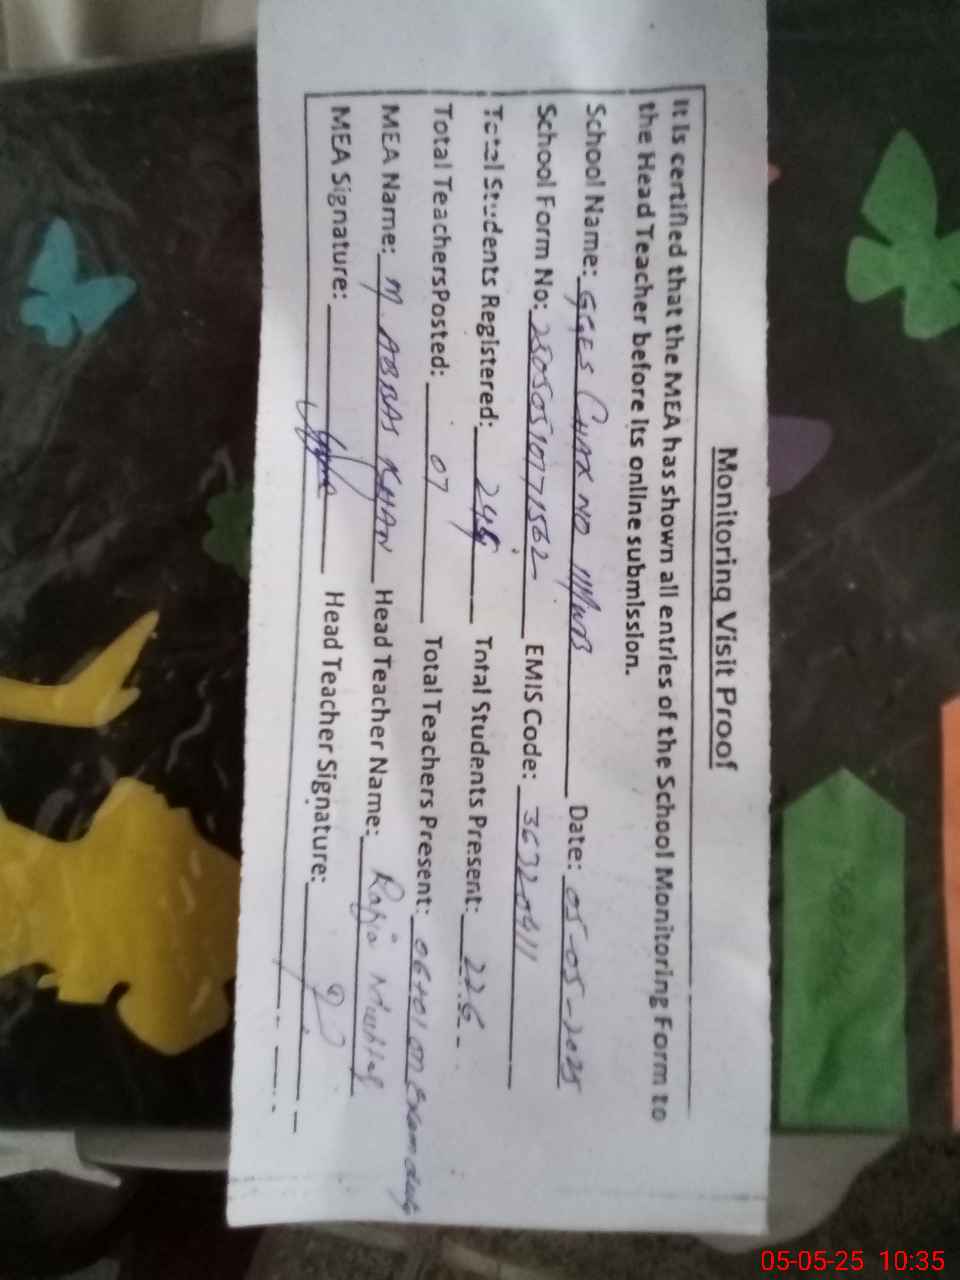 Monitoring Visit Proof
It is certified that the MEA has shown all entries of the School Monitoring Form to
the Head Teacher before its online submission.
School Name: GGES CHAK NO 111/WB Date: 05-05-2025
School Form No: 25050510771562 EMIS Code: 36320411
Total Students Registered: 245 Total Students Present: 226
Total TeachersPosted: 07 Total Teachers Present: 06+01 on Exam duty
MEA Name: M. ABBAS KHAN Head Teacher Name: Rafia Mushtaq
MEA Signature: Head Teacher Signature:
05-05-25 10:35